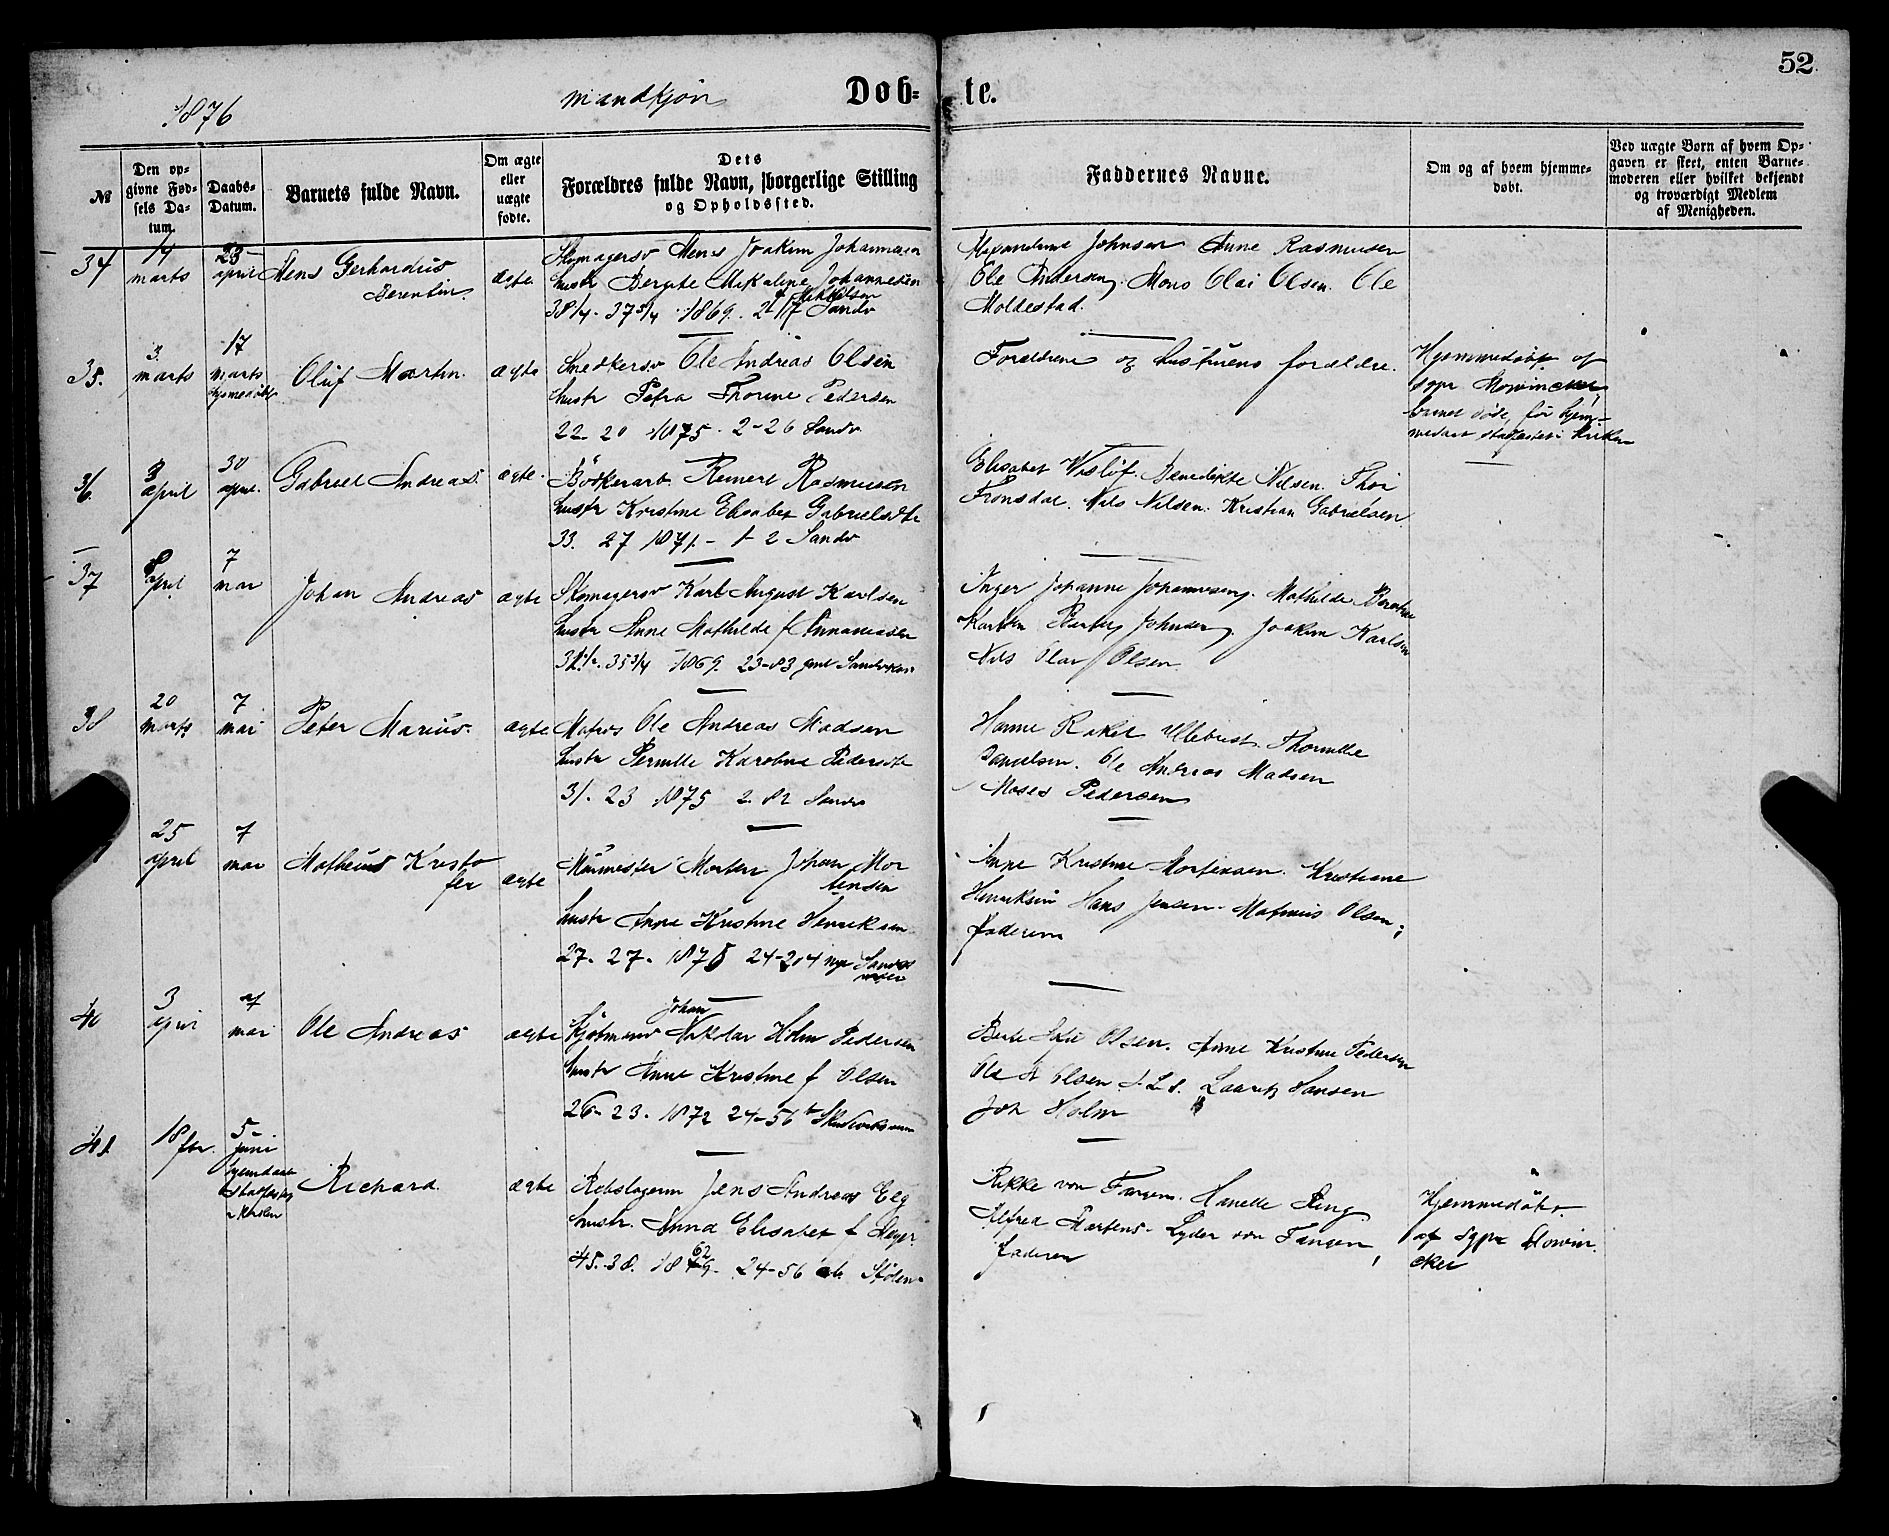 52
1876 mandkjøn Døb- te.
№
Den opgivne Fødsels Datum.
Daabs-Datum.
Barnets fulde Navn.
Om ægte eller uægte fødte.
Dets Forældres fulde Navn, borgerlige Stilling og Opholdssted.
Faddernes Navne.
Om og af hvem hjemmedøbt.
Ved uægte Børn af hvem Opgaven er skeet, enten Barnemoderen eller hvilket bekjendt og troværdigt Medlem af Menigheden.
34 14 marts 23 april Mens Gerhardus
Berentin ægte
Skomagersv Mens Joakim Johannesen
hustr Bergte Mikaline Johannesen
Mikkelsen
38 1/4 - 37 3/4 1869. Sandv
Alexandrine Johnsen Anne Rasmusen
Ole Andersen. Mons Olai Olsen. Ole
Moldestad.
35. 3 marts 17 marts hjemdøbt Oluf Martin. ægte
Snedkersv Ole Andreas Olsen
hustr Petra Thorine Pedersen
22 - 20 1875 - 2-26 Sandv
Forældrene og hustruens forældre.
Hjemmedøbt af
sgpr Mowinckel,
barnet døde, før hjem-
medaab stadfæstet i kirken
36 3 april 30 april. Gabriel Andreas. ægte
Bødkerarb Reinert Rasmusen
hustr Kristine Elisabet Gabrielsdtr
33. 27 1871 - 1-2 Sandv
Elisabet Visløf. Benedikte Nilsen. Thor
Fronsdal. Nils Nilsen. Kristian Gabrielsen.
37 8 april 7 mai Johan Andreas ægte
Skomagersv Karl August Karlsen
hustr Anne Mathilde f Annaniasen
35 3/4 1869. 23-83
Inger Johanne Johannesen. Mathilde
Johnsen. Joakim Karlsen
Nils Olai Olsen.
38 20 marts 7 mai Peter Marius. ægte
Matros Ole Andreas Madsen
hustr Pernille Karoline Pedersdtr
31. 23 1875 2. 82 Sandv
Hanne Rakel Ullebust. Thomille
Danielsen. Ole Andreas Madsen
Moses Pedersen
25 april 7 mai Matheus Kristo
fer ægte
Murmester Morten Johan Mor
tensen
hustr Anne Kristine Henriksen
27. 27. 1875 24-204
Anne Kristine Mortensen. Kristiane
Henriksen Hans Jensen. Matheus Olsen,
faderen
40 3 april 7 mai Ole Andreas ægte
Johan
Kjøbmand Nikolai Holm Pedersen
hustr Anne Kristine f Olsen
26 - 23. 1872 24-56
Olsen. Anne Kristine Pedersen
Ole A Olsen. Lauritz Hansen
Joh Holm
41 18 fbr. 5 juni
hjemdaab
stadfæstet
i kirken Richard. ægte
Rebslagerm Jens Andreas Elg
hustr. Anna Elisabet f Meyer.
45. 38. 1862 24-56
Rikke von Tangen. Hanelle Ring
Alfred Martens. Lyder von Tangen,
faderen
Hjemmedøbt
af sgpr Mowin
ckel